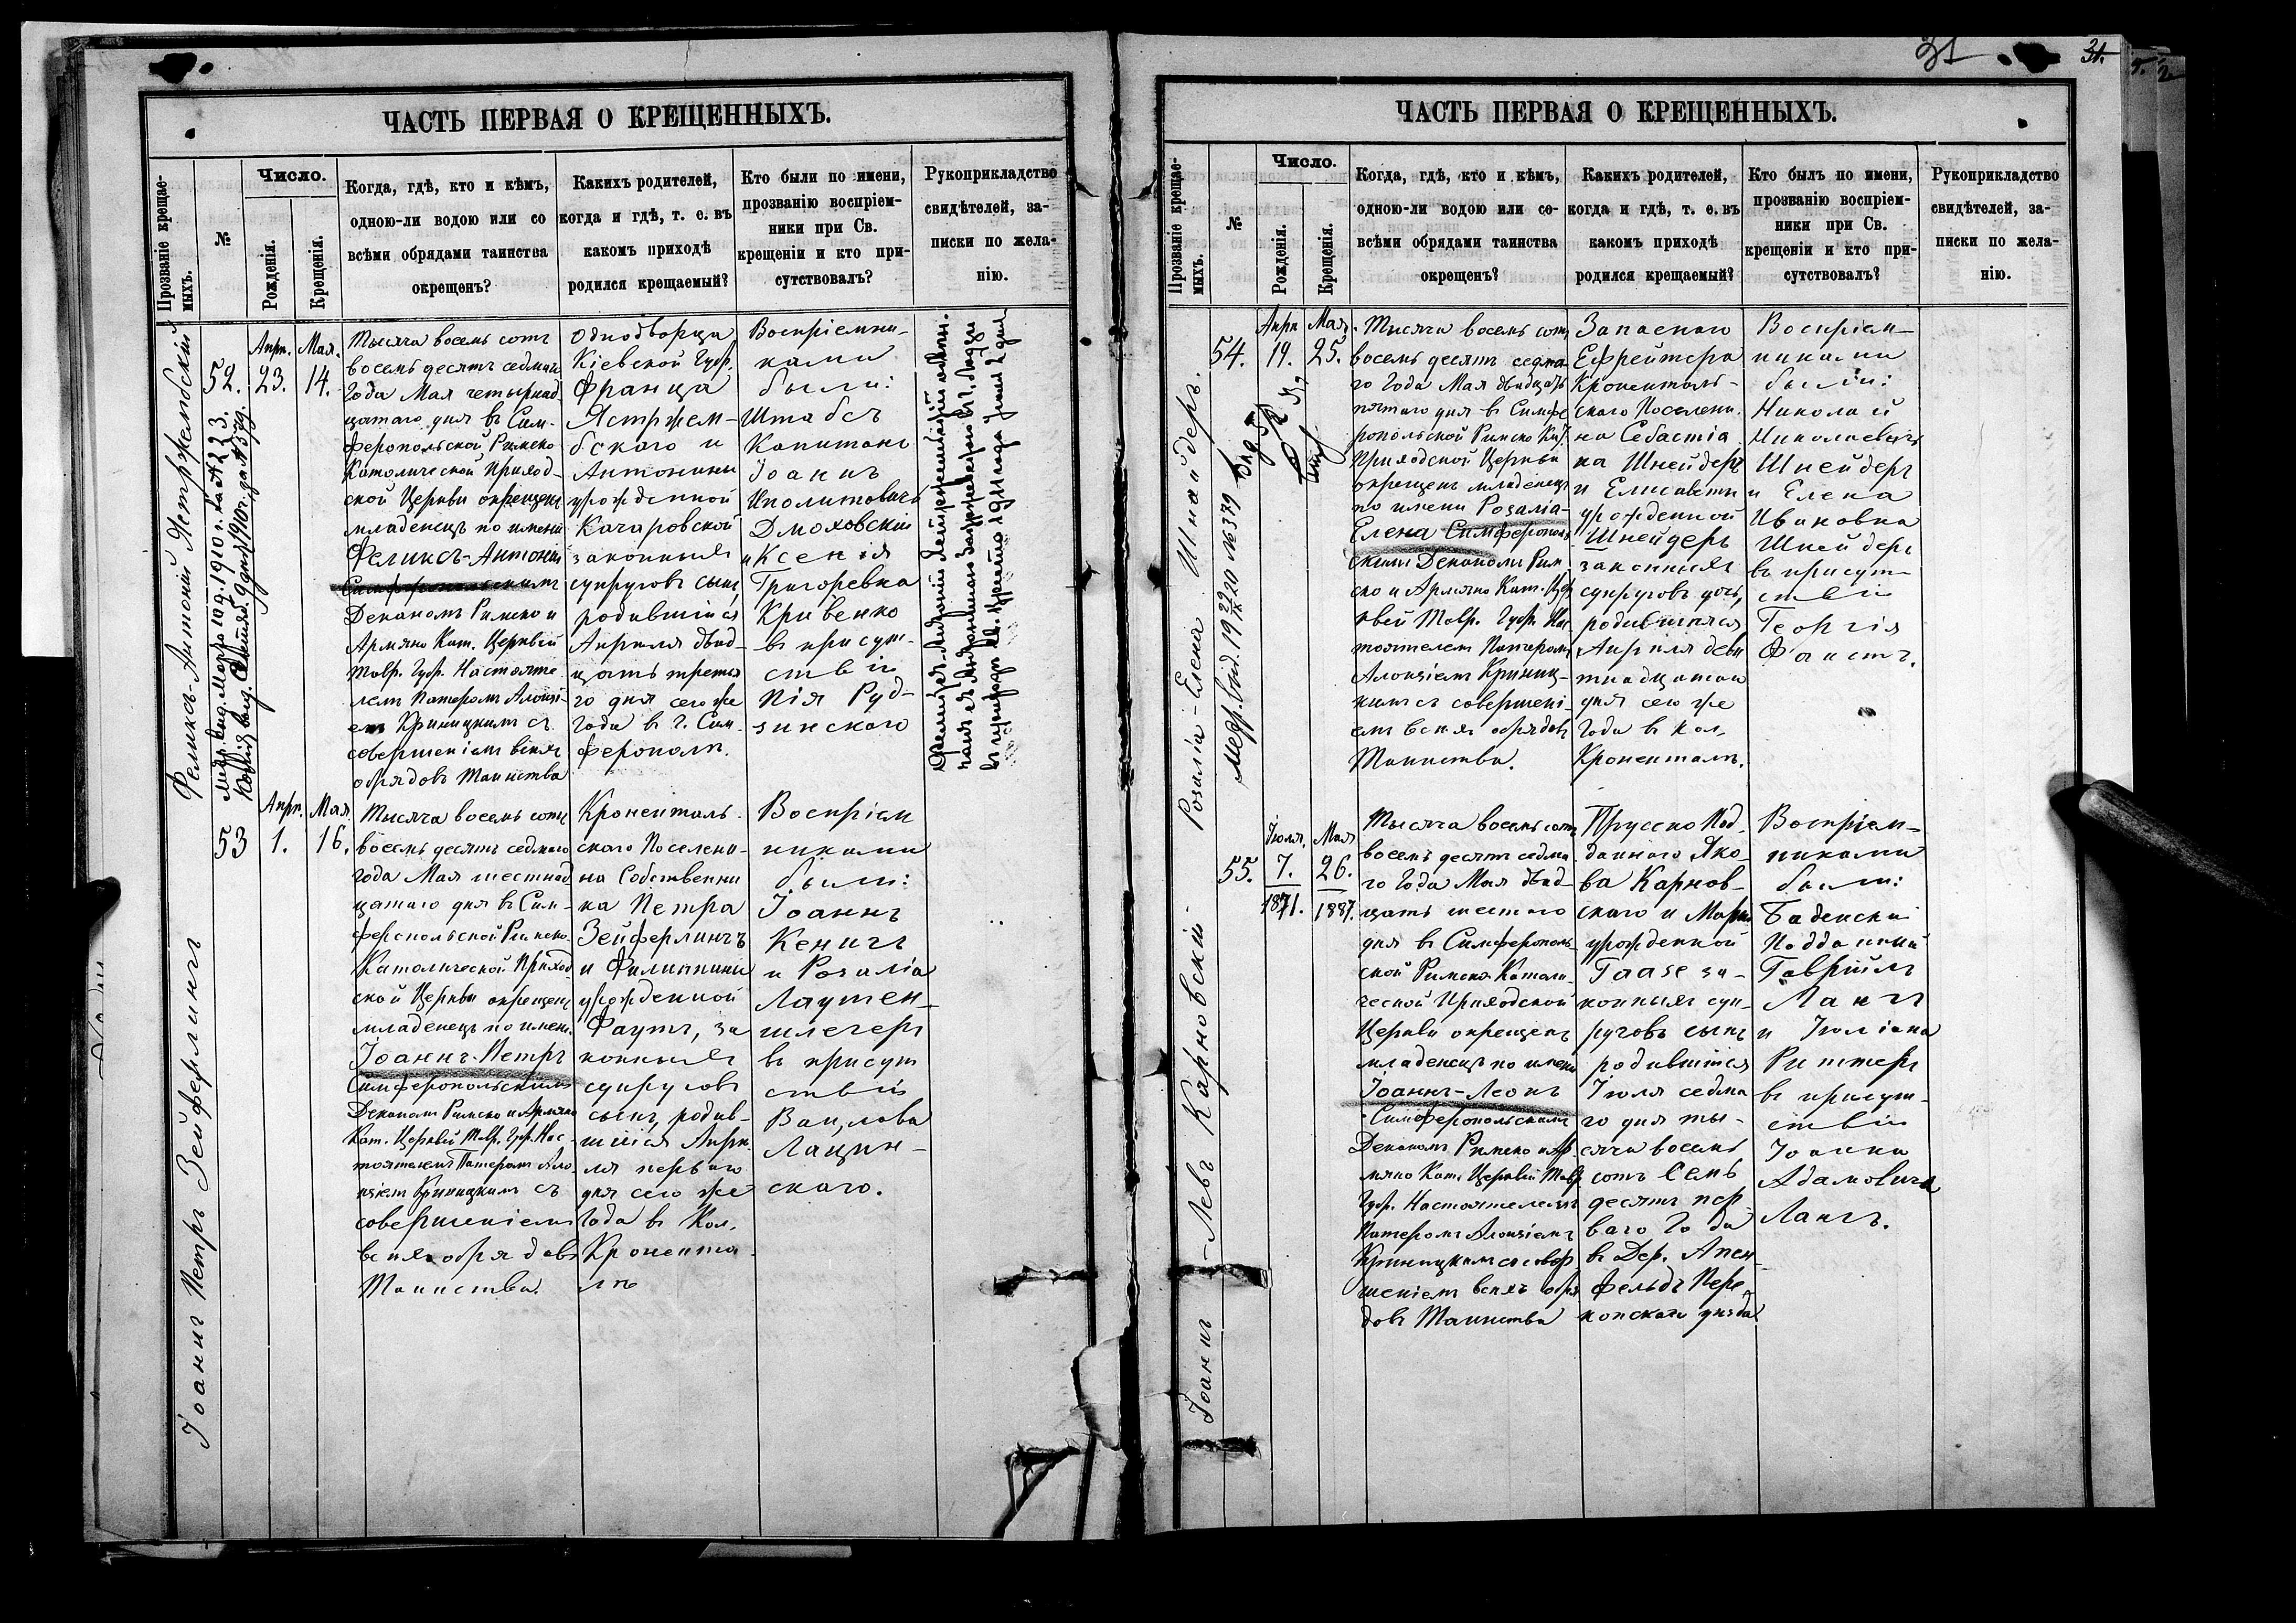 ЧАСТЬ ПЕРВАЯ О КРЕЩЕННЫХЪ.
Прозваніе крещае-
мыхъ.
№
Число.
Рожденія.
Крещенія.
Когда, гдѣ, кто и кѣмъ,
одною-ли водою или со
всѣми обрядами таинства
окрещенъ?
Какихъ родителей,
когда и гдѣ, т. е. въ
какомъ приходѣ
родился крещаемый?
Кто были по имени,
прозванію воспріем-
ники при Св.
крещеніи и кто при-
сутствовалъ?
Рукоприкладство
свидѣтелей, за-
писки по жела-
нію.
Феликсъ-Антоній Ястржембскій
52.
Апр.
23.
Мая.
14.
Тысяча восемь сотъ
восемь десятъ седмаго
Года Мая четырнад
цатаго дня въ Сим-
феропольской Римско
Католической Приход-
ской Церкви окрещенъ
младенецъ по имени
Феликсъ-Антоній
Симферопольскимъ
Деканомъ Римско и
Армяно Кат. Церквей
Тавр. Губр. Настояте
лемъ Патеромъ Алоизі-
емъ Криницкимъ съ
совершеніемъ всѣхъ
обрядовъ Таинства
Однодворца
Кіевской Губр.
Франца
Ястржем-
бскаго и
Антонины
урожденной
Качаровской
законныхъ
супруговъ сынъ,
родившійся
Апрѣля двад-
цать третья
го дня сего же
Года въ г. Сим-
ферополѣ.
Воспріемни-
ками
были:
Штабсъ
Капитанъ
Іоаннъ
Иполитовичъ
Дмоховскій
и Ксенія
Григоревна
Кривенко
въ присут-
ствіи
Пія Руд-
зинскаго
Іоаннъ Петръ Зейферлингъ
53
Апр.
1.
Мая.
16.
Тысяча восемь сотъ
восемь десятъ седмаго
года Мая шестнад
цатаго дня въ Сим-
феропольской Римско-
Католической Приход
ской Церкви окрещенъ
младенецъ по имени
Іоаннъ-Петръ
Симферопольскимъ
Деканомъ Римско и Армяно
Кат. Церквей Тавр. Губр. Нас-
тоятелемъ Патеромъ Ало-
изіемъ Криницкимъ съ
совершеніемъ
всѣхъ обрядовъ
Таинства.
Кроненталь-
скаго Поселени-
на Собственни
ка Петра
Зейферлингъ
и Филиппины
урожденной
Фаутъ, за
конныхъ
супруговъ
сынъ, родив-
шійся Апрѣ-
ля перваго
дня сего же
Года въ Кол.
Кронента-
лѣ
Воспріем
никами
были:
Іоаннъ
Кенигъ
и Розалія
Лаутен-
шлегеръ
въ присут
ствіи
Вацлава
Лацин-
скаго.
31
31.
ЧАСТЬ ПЕРВАЯ О КРЕЩЕННЫХЪ.
Прозваніе крещае-
мыхъ.
№
Число.
Рожденія.
Крещенія.
Когда, гдѣ, кто и кѣмъ,
одною-ли водою или со-
всѣми обрядами таинства
окрещенъ?
Какихъ родителей,
когда и гдѣ, т. е. въ
какомъ приходѣ
родился крещаемый?
Кто былъ по имени,
прозванію воспріем-
ники при Св.
крещеніи и кто при-
сутствовалъ?
Рукоприкладство
свидѣтелей, за-
писки по жела-
нію.
Розалія-Елена Шнайдеръ.
54.
Апр.
19.
Мая.
25.
Тысяча восемь сотъ
восемь десятъ седма
го Года Мая двадцать
пятаго дня въ Симфе
ропольской Римско Кат.
Приходской Церкви
окрещенъ младенецъ
по имени Розалія-
Елена Симферополь
скимъ Деканомъ Рим
ско и Армяно Кат. Цер
квей Тавр. Губр. Нас
тоятелемъ Патеромъ
Алоизіемъ Криниц-
кимъ съ совершені-
емъ всѣхъ обрядовъ
Таинства.
Запаснаго
Ефрейтера
Кроненталь-
скаго Поселени-
на Себастіа
на Шнейдеръ
и Елисаветы
урожденной
Шнейдеръ
законныхъ
супруговъ дочь,
родившаяся
Апрѣля девя
тнадцатаго
дня сего же
Года въ Кол.
Кроненталѣ.
Воспріем-
никами
были:
Николай
Николаевичъ
Шнейдеръ
и Елена
Ивановна
Шнейдеръ
въ присут-
ствіи
Георгія
Фаистъ.
Іоаннъ-Левъ Карновскій
55.
Іюля.
7.
1871.
Мая
26.
1887.
Тысяча восемь сотъ
восемь десятъ седма
го Года Мая двад-
цать шестаго
дня въ Симферополь-
ской Римско-Католи-
ческой Приходской
Церкви окрещенъ
младенецъ по имени
Іоаннъ-Леонъ
Симферопольскимъ
Деканомъ Римско и Ар
мяно Кат. Церквей Тавр.
Губр. Настоятелемъ
Патеромъ Алоизіемъ
Криницкимъ съ совер
шеніемъ всѣхъ обря
довъ Таинства
Прусско Под-
даннаго Яко-
ва Карнов-
скаго и Маріи
урожденной
Гаазе за-
конныхъ суп-
руговъ сынъ
родившійся
Іюля седма
го дня ты-
сяча восемь
сотъ Семь
десятъ пер
ваго Года
въ Дер. Апен-
фельдъ Пере
копскаго уѣзда
Воспріем-
никами
были:
Баденскій
Подданный
Гавріилъ
Лангъ
и Іюліана
Риттеръ
въ присут-
ствіи
Іоанна
Адамовича
Лангъ.